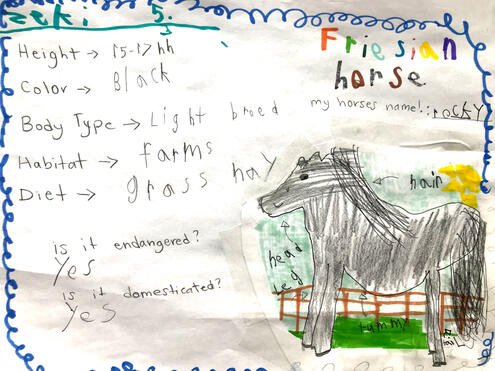 zeki 5.
Friesian
horse
Height → 15-17 hh
Color → Black
my horses name!: rocky
Body Type → Light breed
Habitat → farms
Diet → grass hay
is it endangered?
Yes
is it domesticated?
Yes
hair
head
leg
tummy